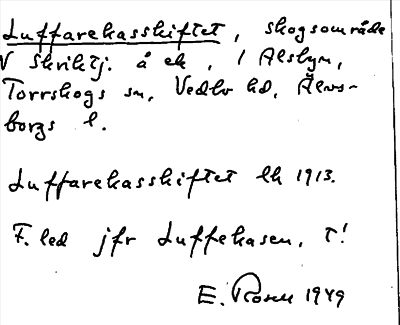 Luffarekasskiftet, skogsområde
V Skriktj. å ek, i Alsbyn,
Torrskogs sn, Vedbo hd, Älvs-
borgs l.
Luffarekasskiftet lk 1913.
F. led jfr Luffekasen, T!
E. Rosen 1949